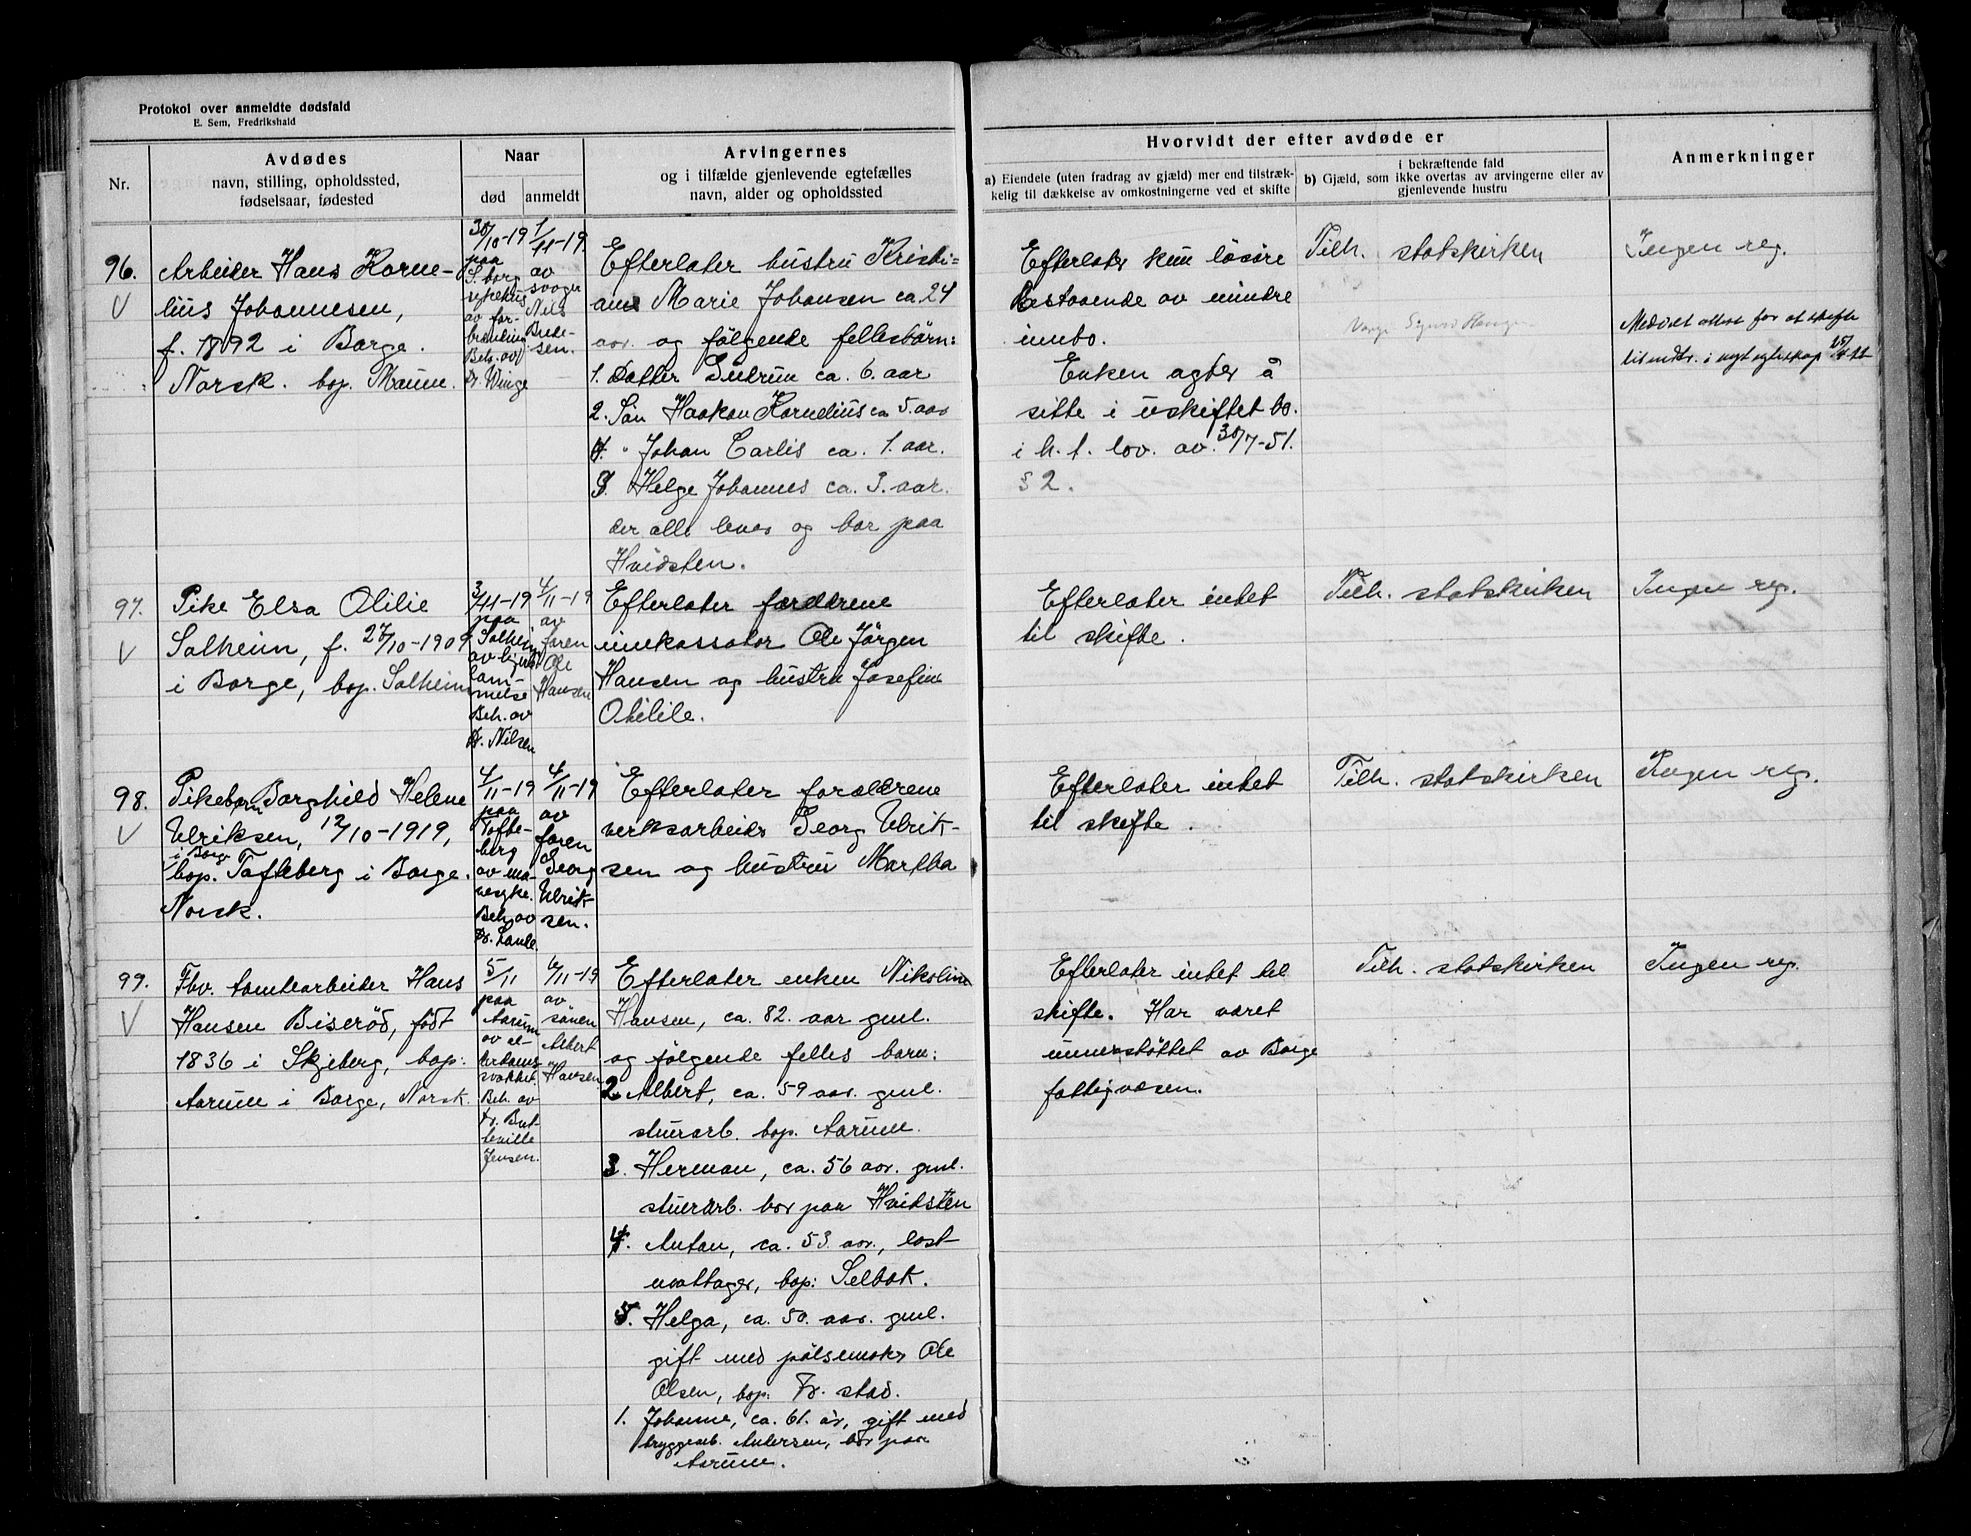 Protokol over anmeldte dødsfald
E. Sem, Fredrikshald
Nr.
Avdødes
navn, stilling, opholdssted,
fødselsaar, fødested
Naar
død
anmeldt
Arvingernes
og i tilfælde gjenlevende egtefælles
navn, alder og opholdssted
Hvorvidt der efter avdøde er
a) Eiendele (uten fradrag av gjæld) mer end tilstræk-
kelig til dækkelse av omkostningerne ved et skifte
i bekræftende fald
b) Gjæld, som ikke overtas av arvingerne eller av
gjenlevende hustru
Anmerkninger
96.
V
Arbeider Hans Korne-
lius Johannesen,
f. 1892 i Borge.
Norsk. bop. Maum.
30/10-19
paa
S.borg
sykehus
av for-
brænding
Beh. av
Dr. Winge
1/11-19.
av
svoger
Nils
Brede-
sen.
Efterlater hustru Kristi=
ane Marie Johansen ca 24
aar. og følgende fellesbørn:
1. Datter Gudrun ca. 6. aar
2. Søn Haakon Kornelius ca 5. aar
4. " Johan Carlis ca. 1. aar.
3. Helge Johannes ca. 3. aar.
der alle leves og bor paa
Hvidsten.
Efterlater kun løsøre
bestaaende av mindre
innbo.
Enken agter å
sitte i uskiftet bo.
i h. t. lov. av. 30/7-51.
§ 2.
Tilh. statskirken
Verge Sigurd
Ingen reg.
Meddelt attest for at skifte
97.
V
Pike Elsa Otilie
Solheim, f. 27/10-1909
i Borge, bop. Solheim
3/11-19
paa
Solheim
av hjerte
lam-
melse
Beh. av
Dr. Nilsen
4/11-19
av
faren
Ole
Hansen
Efterlater forældrene
innkassator Ole Jørgen
Hansen og hustru Josefine
Otilile.
Efterlater intet
til skifte.
Tilh. statskirken
Ingen reg.
98.
V
Pikebarn Borghild Helene
Ulriksen, 12/10-1919,
i Borge
bop. Tofteberg i Borge.
Norsk.
4/11-19
paa
Tofte-
berg
av ma-
vesyke.
Beh. av
Dr.
4/11-19
av
faren
Georg
Ulrik-
sen.
Efterlater forældrene
verksarbeider Georg Ulrik-
sen og hustru Martha
Efterlater intet
til skifte.
Tilh. statskirken
Ingen reg.
99.
V
Fhv. tomtearbeider Hans
Hansen Biserød, født
1836 i Skjeberg, bop:
Aarum i Borge, Norsk.
5/11
paa
Aarum
av al-
derdoms
svakhet.
Beh. av
Dr. But-
teville
Jensen.
6/11-19
av
sønen
Albert
Hansen
Efterlater enken Nikoline
Hansen, ca. 82. aar gml.
og følgende felles barn:
2 Albert, ca. 59 aar. gml.
stuerarb. bop. Aarum.
3. Herman, ca. 56 aar. gml.
stuerarb. bor paa Hvidsten
4. Anton, ca. 53 aar., last-
mottager, bop: Selbak.
5. Helga, ca. 50. aar. gml.
gift med pølsemaker Ole
Olsen, bop. Fr. stad.
1. Johanne, ca. 61. år, gift med
bryggearb. Andersen, bor paa
Aarum.
Efterlater intet til
skifte. Har været
understøttet av Borge
fattigvæsen.
Tilh. statskirken
Ingen reg.